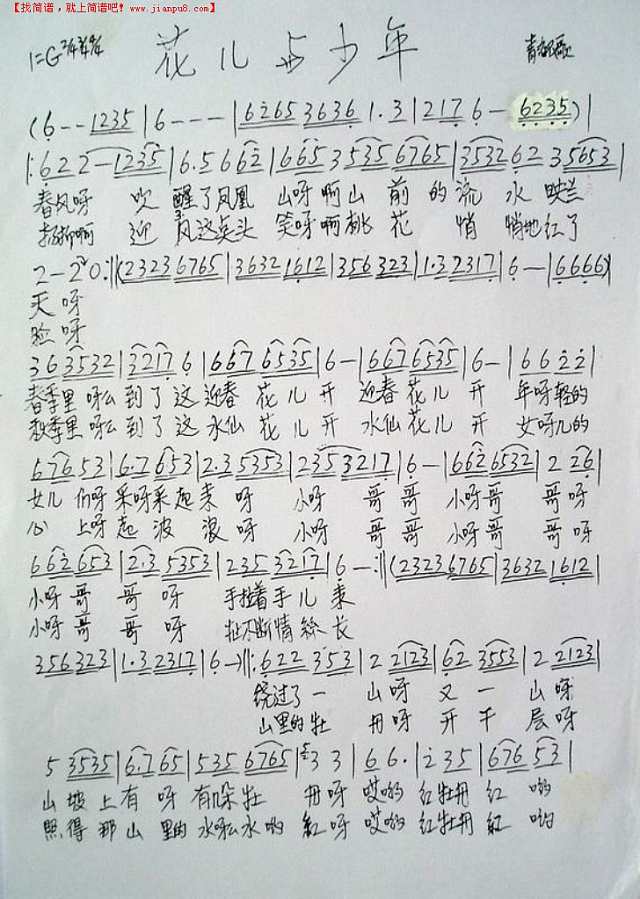 【找简谱，就上简谱吧! www.jianpu8.com】
1=G 2/4 3/4 4/4 花儿与少年 青海民歌
(6--1235|6---|6265 3636 1·3|217 6- 6235)|
|:622-1235|6·56 62|665 3535 6765|3532 62 35653|
春风呀 吹醒了凤凰 山呀啊山 前的流水 映兰
迎 风这点头 笑呀啊桃花 悄悄地红了
2-20:‖(2323 6765|3632 1612|356323|1·3 2317|6-|6666)|
天呀
脸呀
36 3532|3217 6|667 6535|6-|667 6535|6-|6622|
春季里呀么到了这迎春花儿开 迎春花儿开 年呀轻的
秋季里呀么到了这水仙花儿开 水仙花儿开 女呀儿的
676 53|6·7 653|2·3 5353|2353217|6-|662 6532|2 26|
女儿们呀采呀采起来呀 小呀哥哥 小呀哥 哥呀
心上呀起波浪呀 小呀哥哥 小呀哥 哥呀
662 653|2·3 5353|235 3217|6-:‖(2323 6765|3632 1612|
小呀哥哥呀 手拉着手儿来
小呀哥哥呀 扯不断情丝长
356323|1·3 2317|6-)‖:622 353|2 2123|62 3553|2 2123|
绕过了一山呀又一山呀
山里的牡丹呀开千层呀
5 3535|6·765|535 6765|33|66·|235|676 53|
山坡上有呀有几朵牡丹呀 哎哟 红牡丹红哟
照得那山里的水呀么水哟 红呀 哎哟 红牡丹红哟